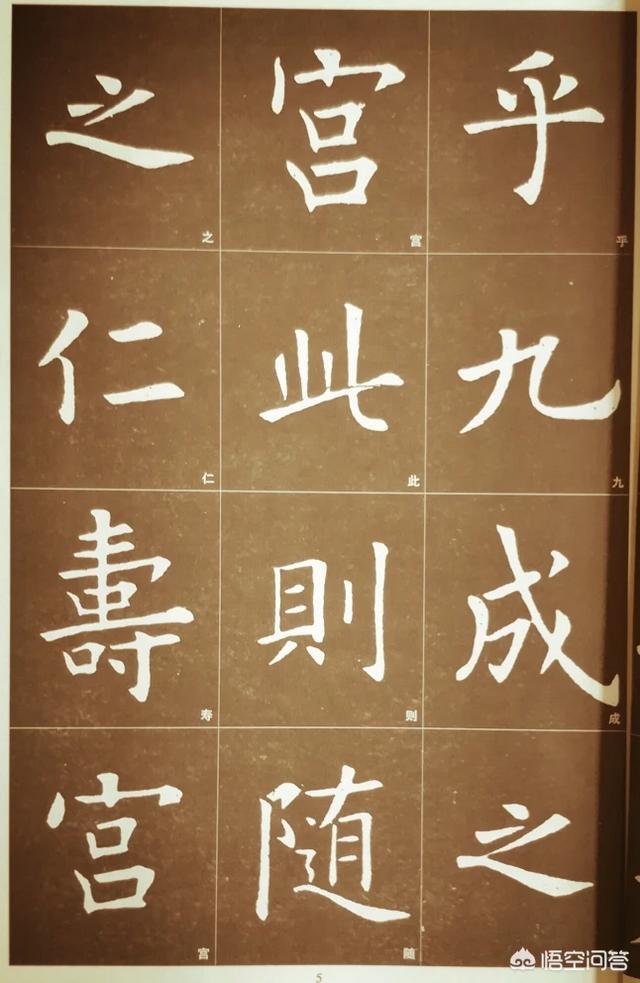 乎九成之
宫此則随
之仁壽宫
乎
九
成
之
宫
此
则
随
之
仁
寿
宫
5
悟空问答